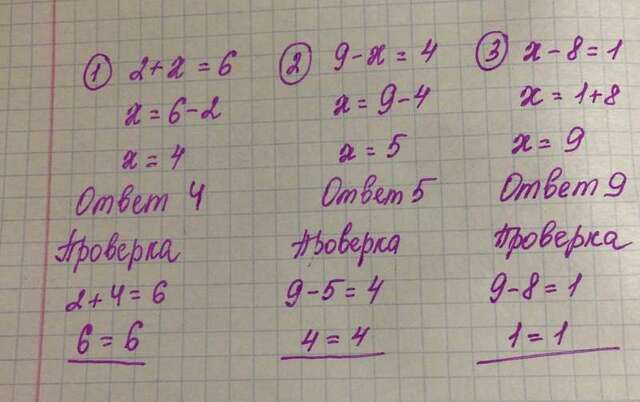 ① 2+x=6
x=6-2
x=4
Ответ 4
Проверка
2+4=6
6=6
② 9-x=4
x=9-4
x=5
Ответ 5
Проверка
9-5=4
4=4
③ x-8=1
x=1+8
x=9
Ответ 9
Проверка
9-8=1
1=1